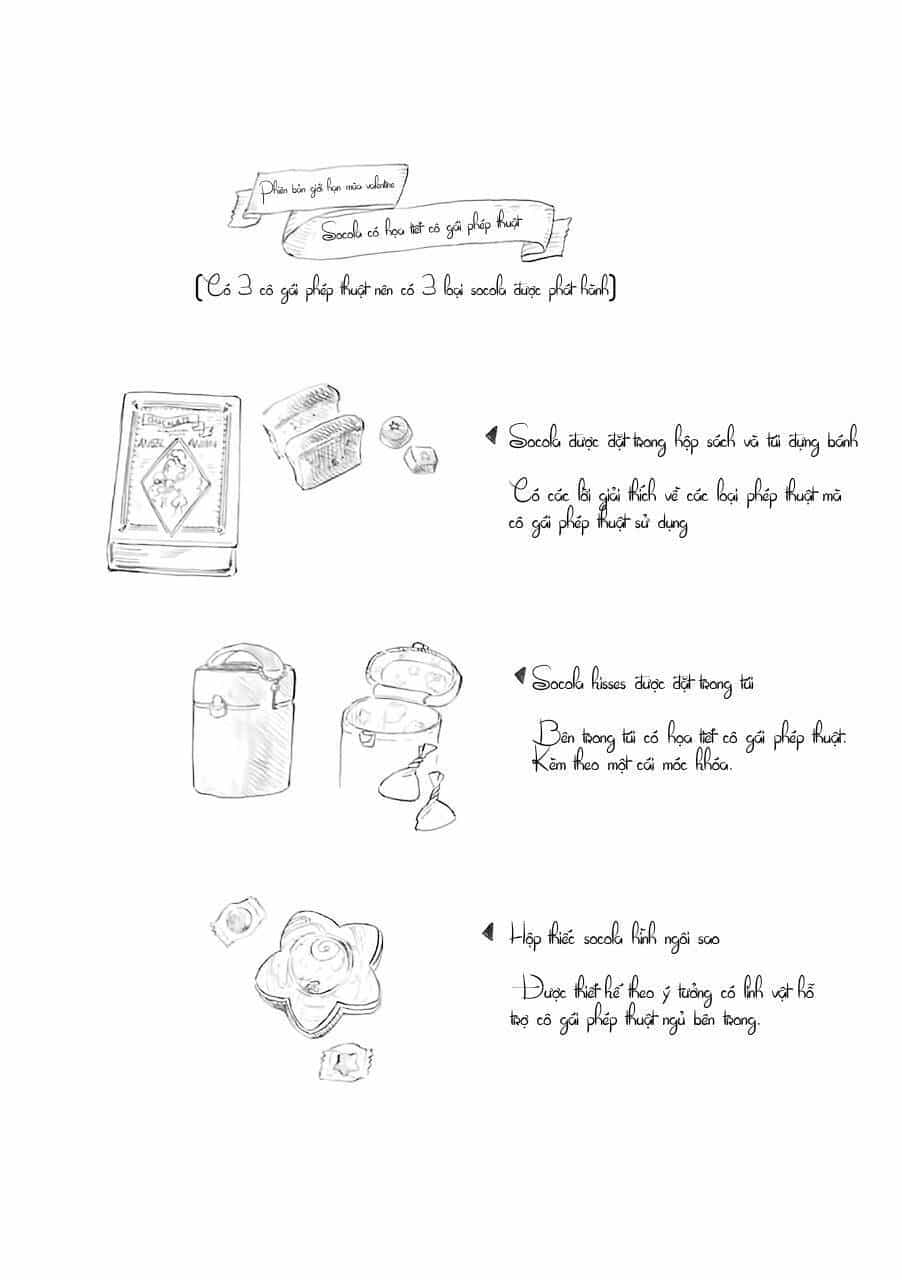 Phiên bản giới hạn mùa valentine
Socola có họa tiết cô gái phép thuật
(Có 3 cô gái phép thuật nên có 3 loại socola được phát hành)
Socola được đặt trong hộp sách và túi đựng bánh
Có các lời giải thích về các loại phép thuật mà
cô gái phép thuật sử dụng
Socola kisses được đặt trong túi
Bên trong túi có họa tiết cô gái phép thuật.
Kèm theo một cái móc khóa.
Hộp thiếc socola hình ngôi sao
Được thiết kế theo ý tưởng có linh vật hỗ
trợ cô gái phép thuật ngủ bên trong.